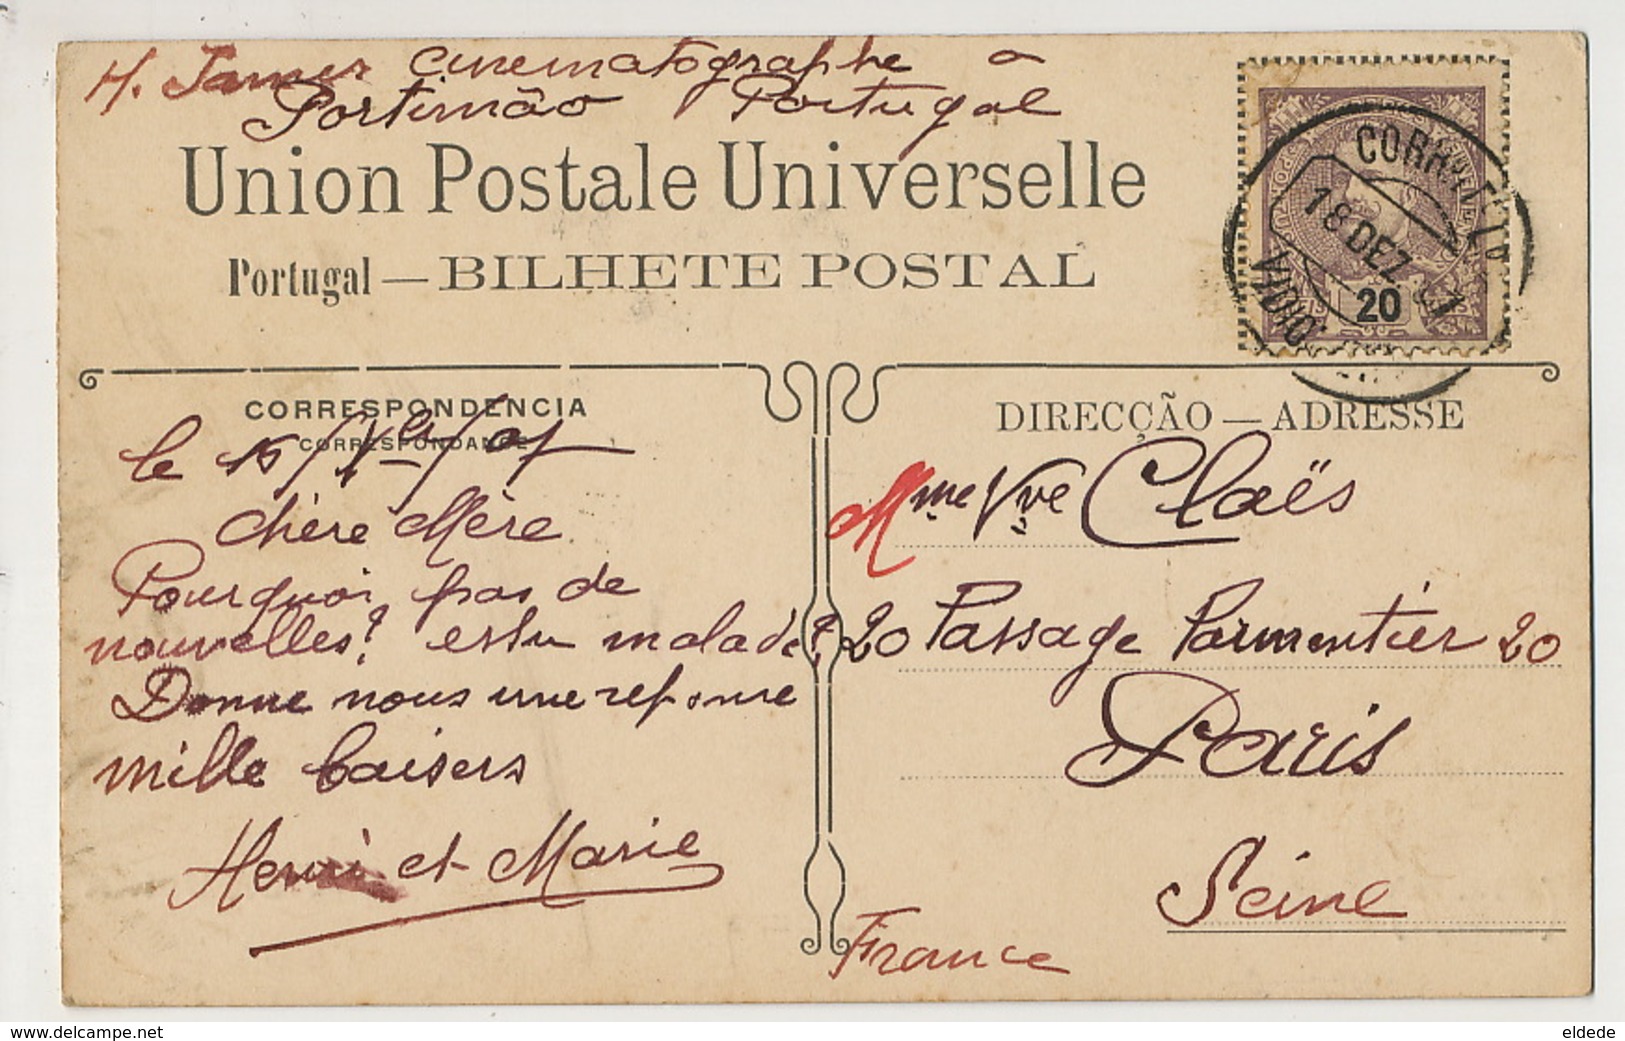 H. James cinematographe à
Portimão Portugal
Union Postale Universelle
Portugal — BILHETE POSTAL
20
18 DEZ
CORRESPONDENCIA
CORRESPONDANCE
le
chère Mère
Pourquoi pas de
nouvelles? estu malade?
Donne nous une reponse
mille baisers
Henri et Marie
DIRECÇÃO — ADRESSE
Mme Vve Claës
20 Passage Parmentier 20
Paris
Seine
France
www.delcampe.net
eldede